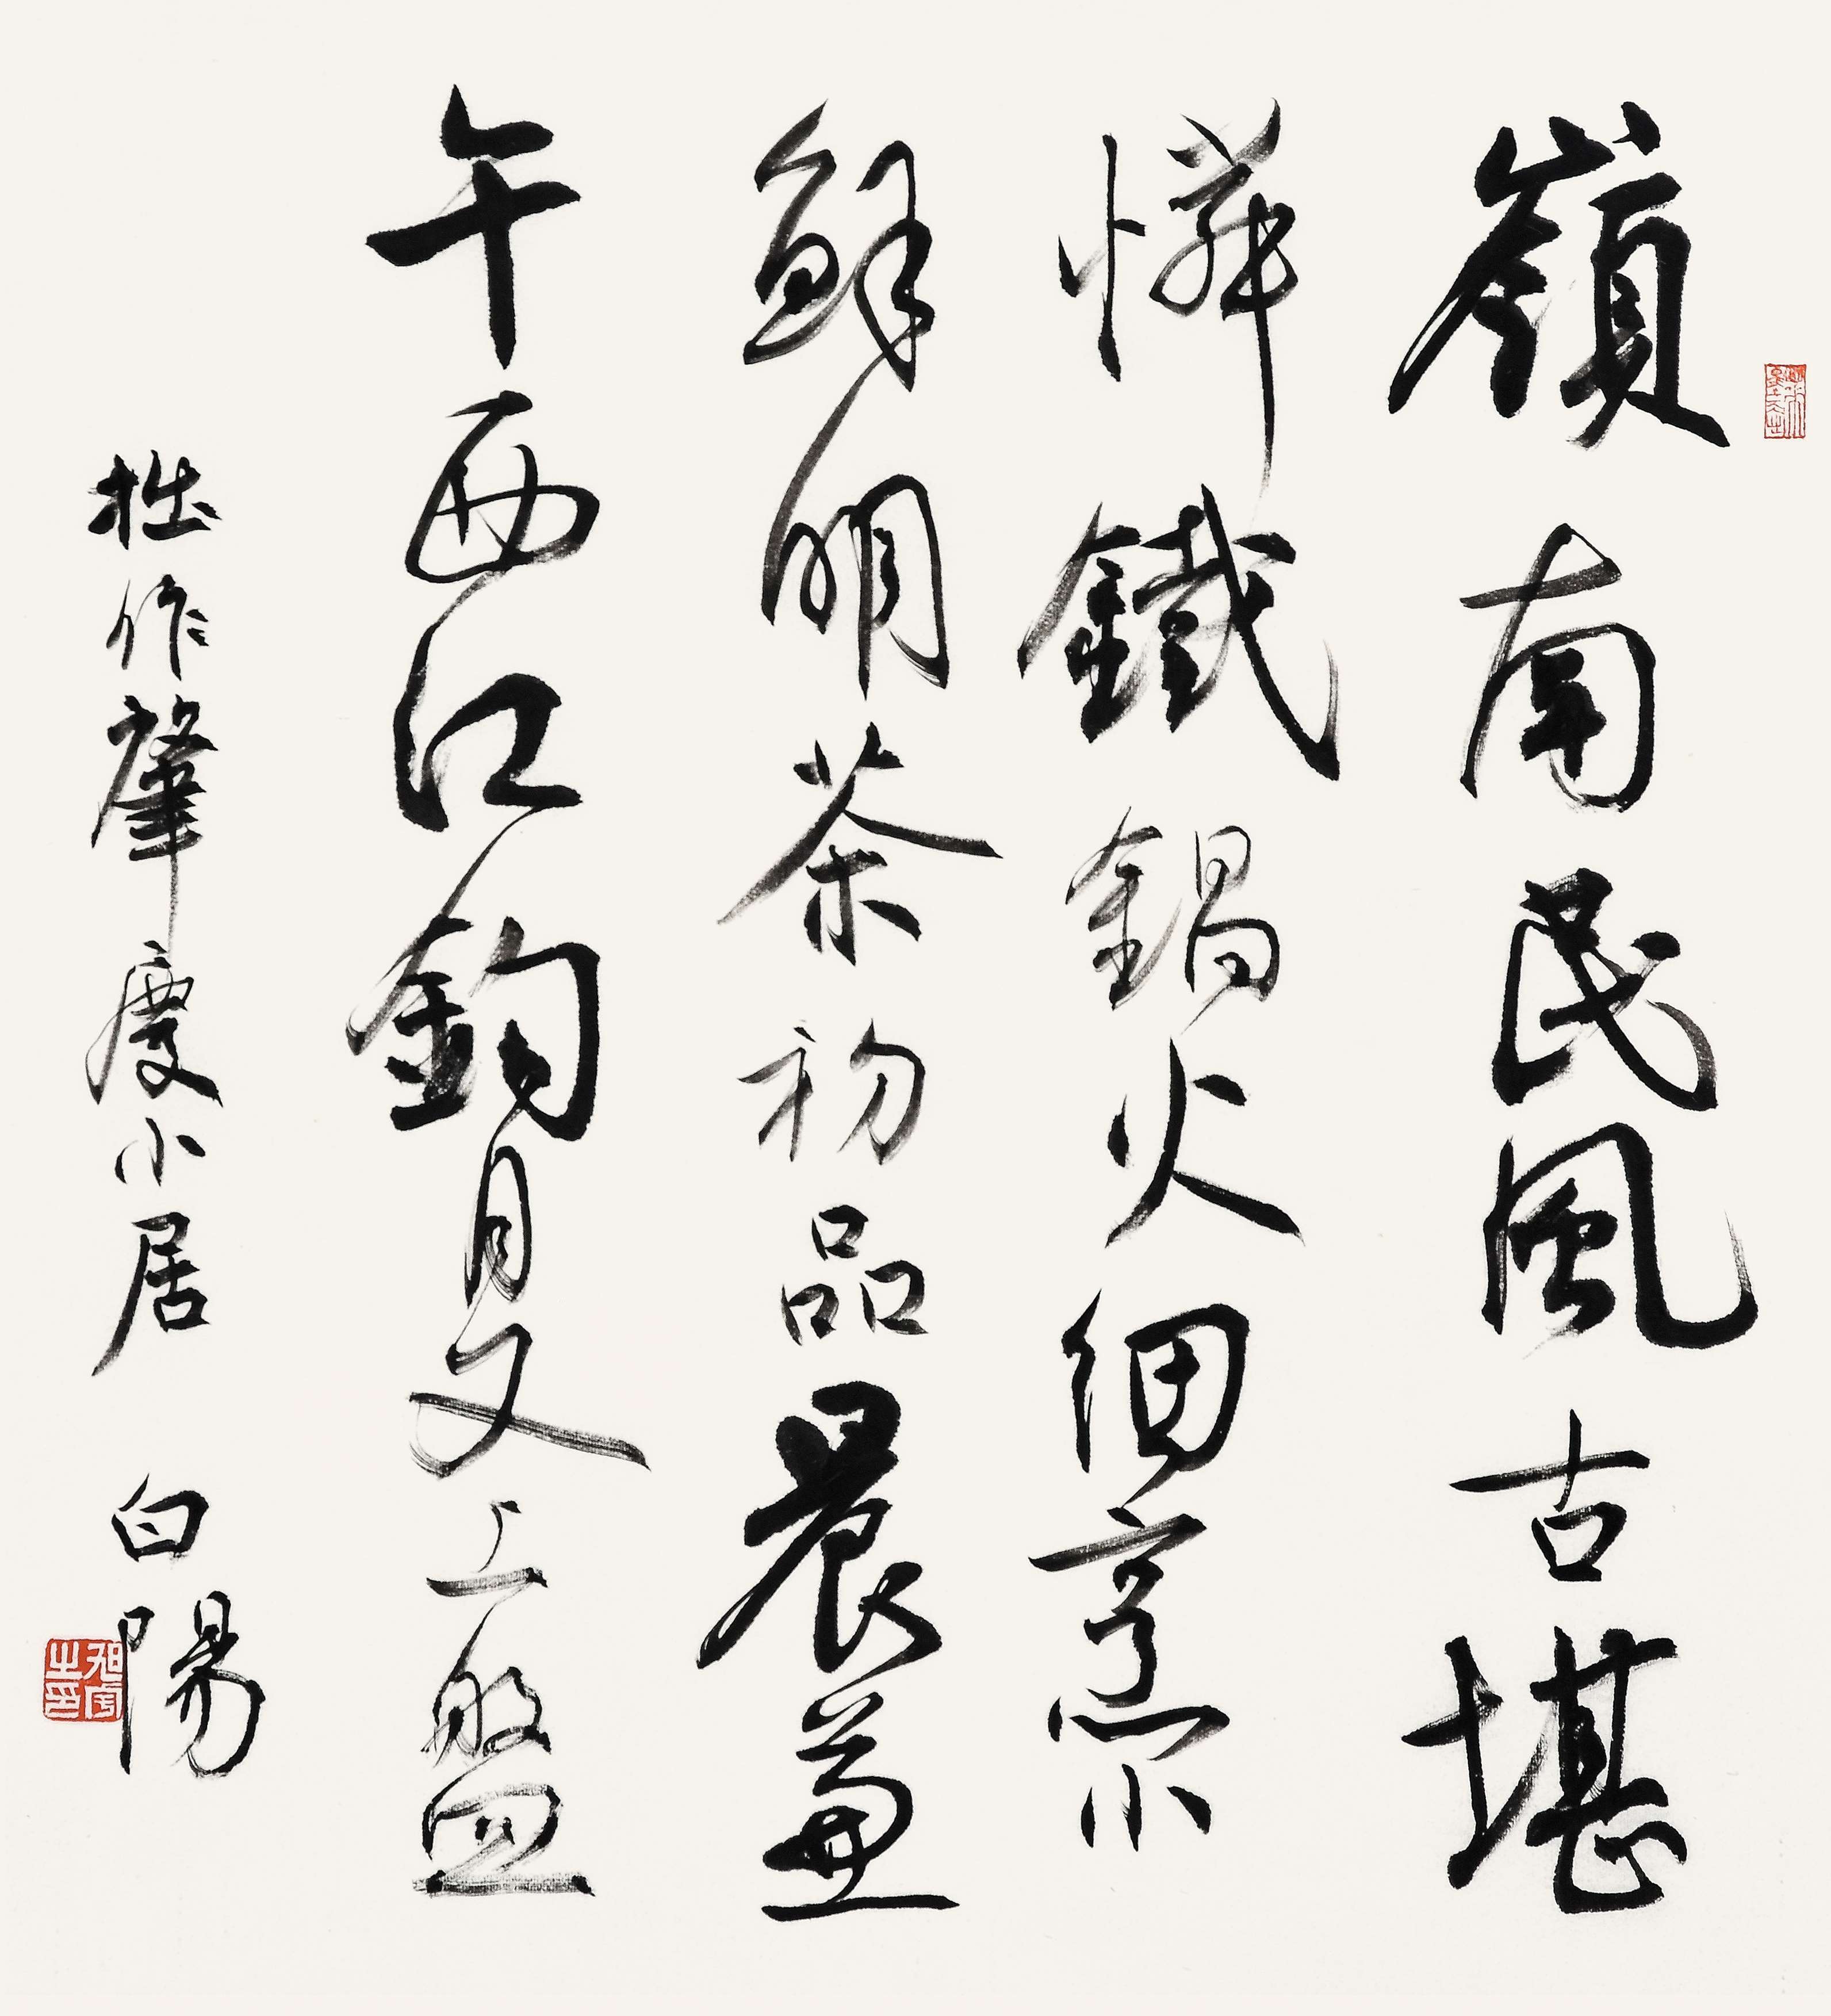 嶺南民風古堪
憐鐵鍋火細烹小
鮮明茶初品晨兼
午西江鉤月又上盤
拙作肇慶小居 白陽